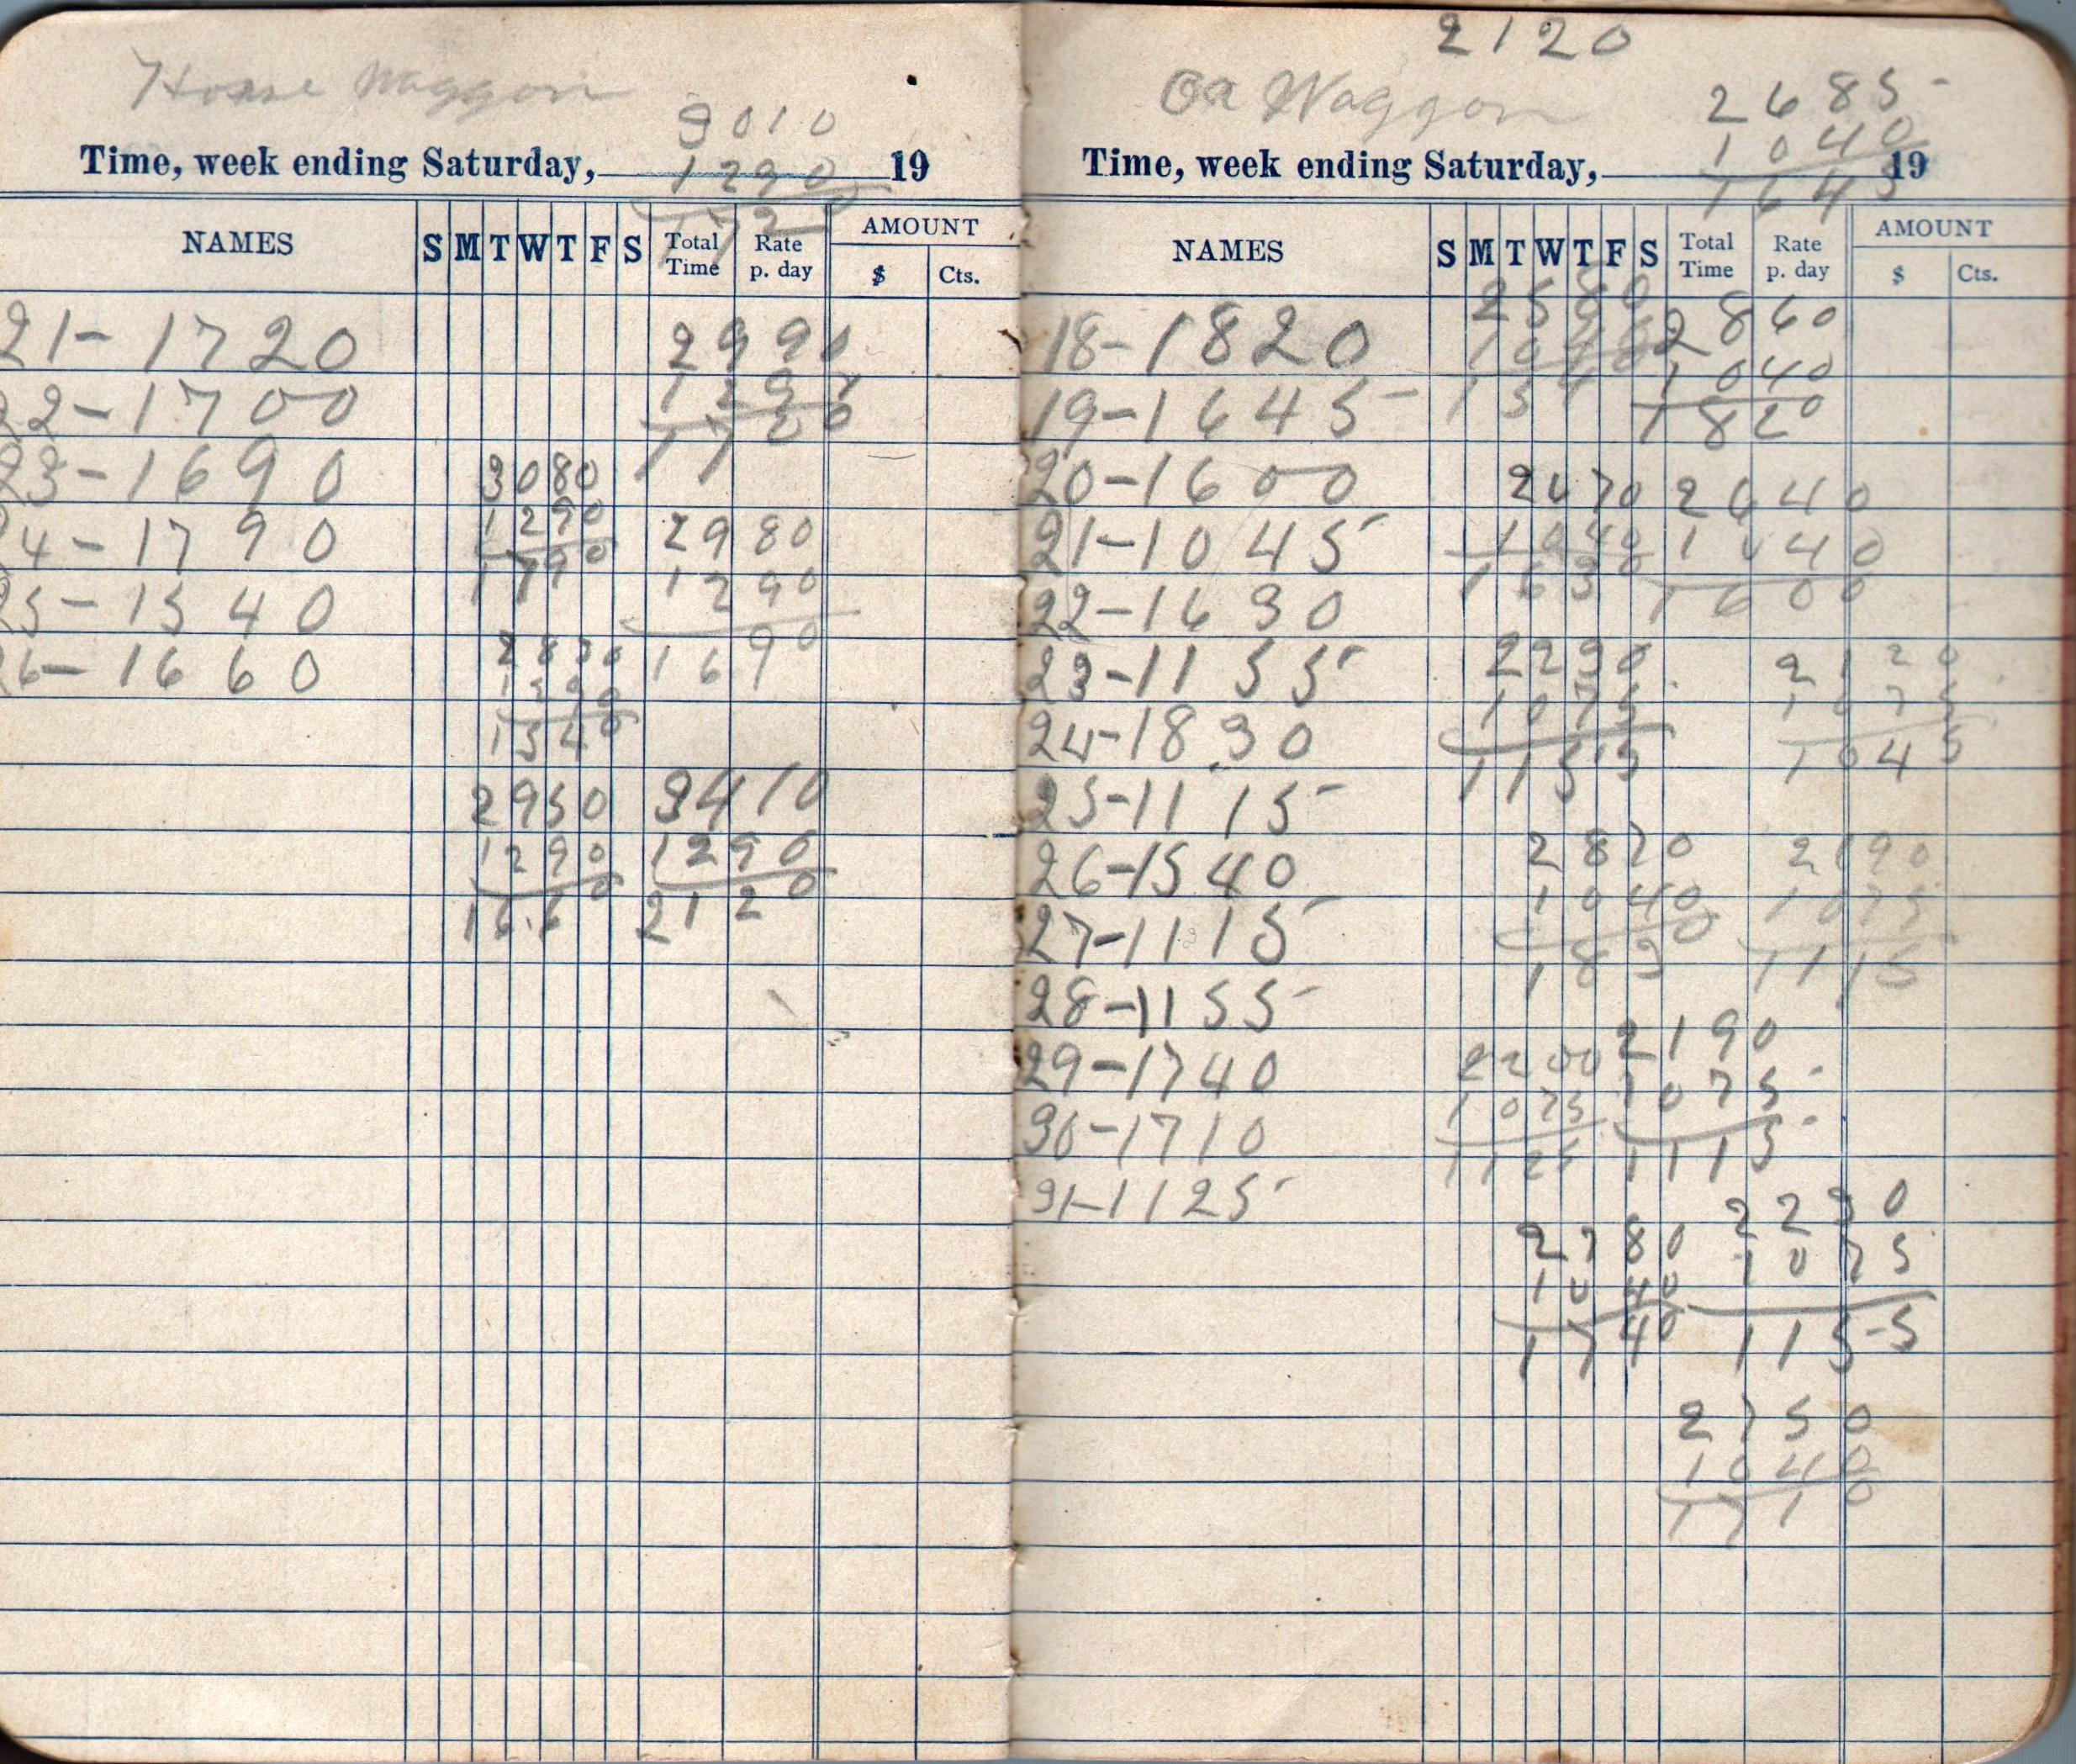 Horse Waggon
3010
Time, week ending Saturday, 19
1290
1720
NAMES S M T W T F S Total Time Rate p. day AMOUNT $ Cts.
21-1720
22-1700
23-1690
24-1790
25-1540
26-1660
2990
1290
1700
3080
1290
1790
2980
1290
1690
2830
1290
1540
2950
1290
1660
3410
1290
2120
2120
Ox Waggon
2685
1040
Time, week ending Saturday, 19
1645
NAMES S M T W T F S Total Time Rate p. day AMOUNT $ Cts.
18-1820
19-1645
20-1600
21-1045
22-1630
23-1155
24-1830
25-1115
26-1540
27-1115
28-1155
29-1740
30-1710
31-1125
2580
1040
154
2860
1040
1820
2670
1040
1630
2640
1040
1600
2230
1075
1155
2120
1075
1045
2870
1040
1830
2190
1075
1115
2200
1075
1125
2190
1075
1115
2780
1040
1740
2230
1075
1155
2750
1040
1710